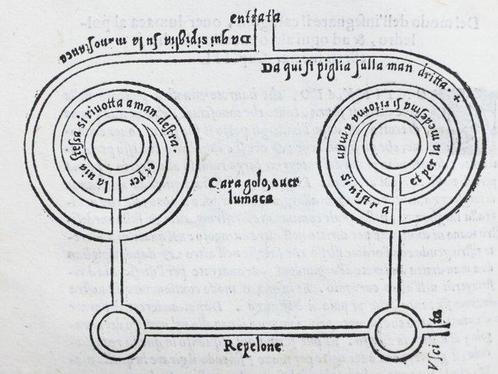 entrata
Da qui si piglia su la mano stanca
Da qui si piglia sulla man dritta.
et per la uia stessa si riuolta a man destra.
et per la medesma si ritorna a man sinistra
Caragolo, ouer
lumaca
Repelone
Vscita